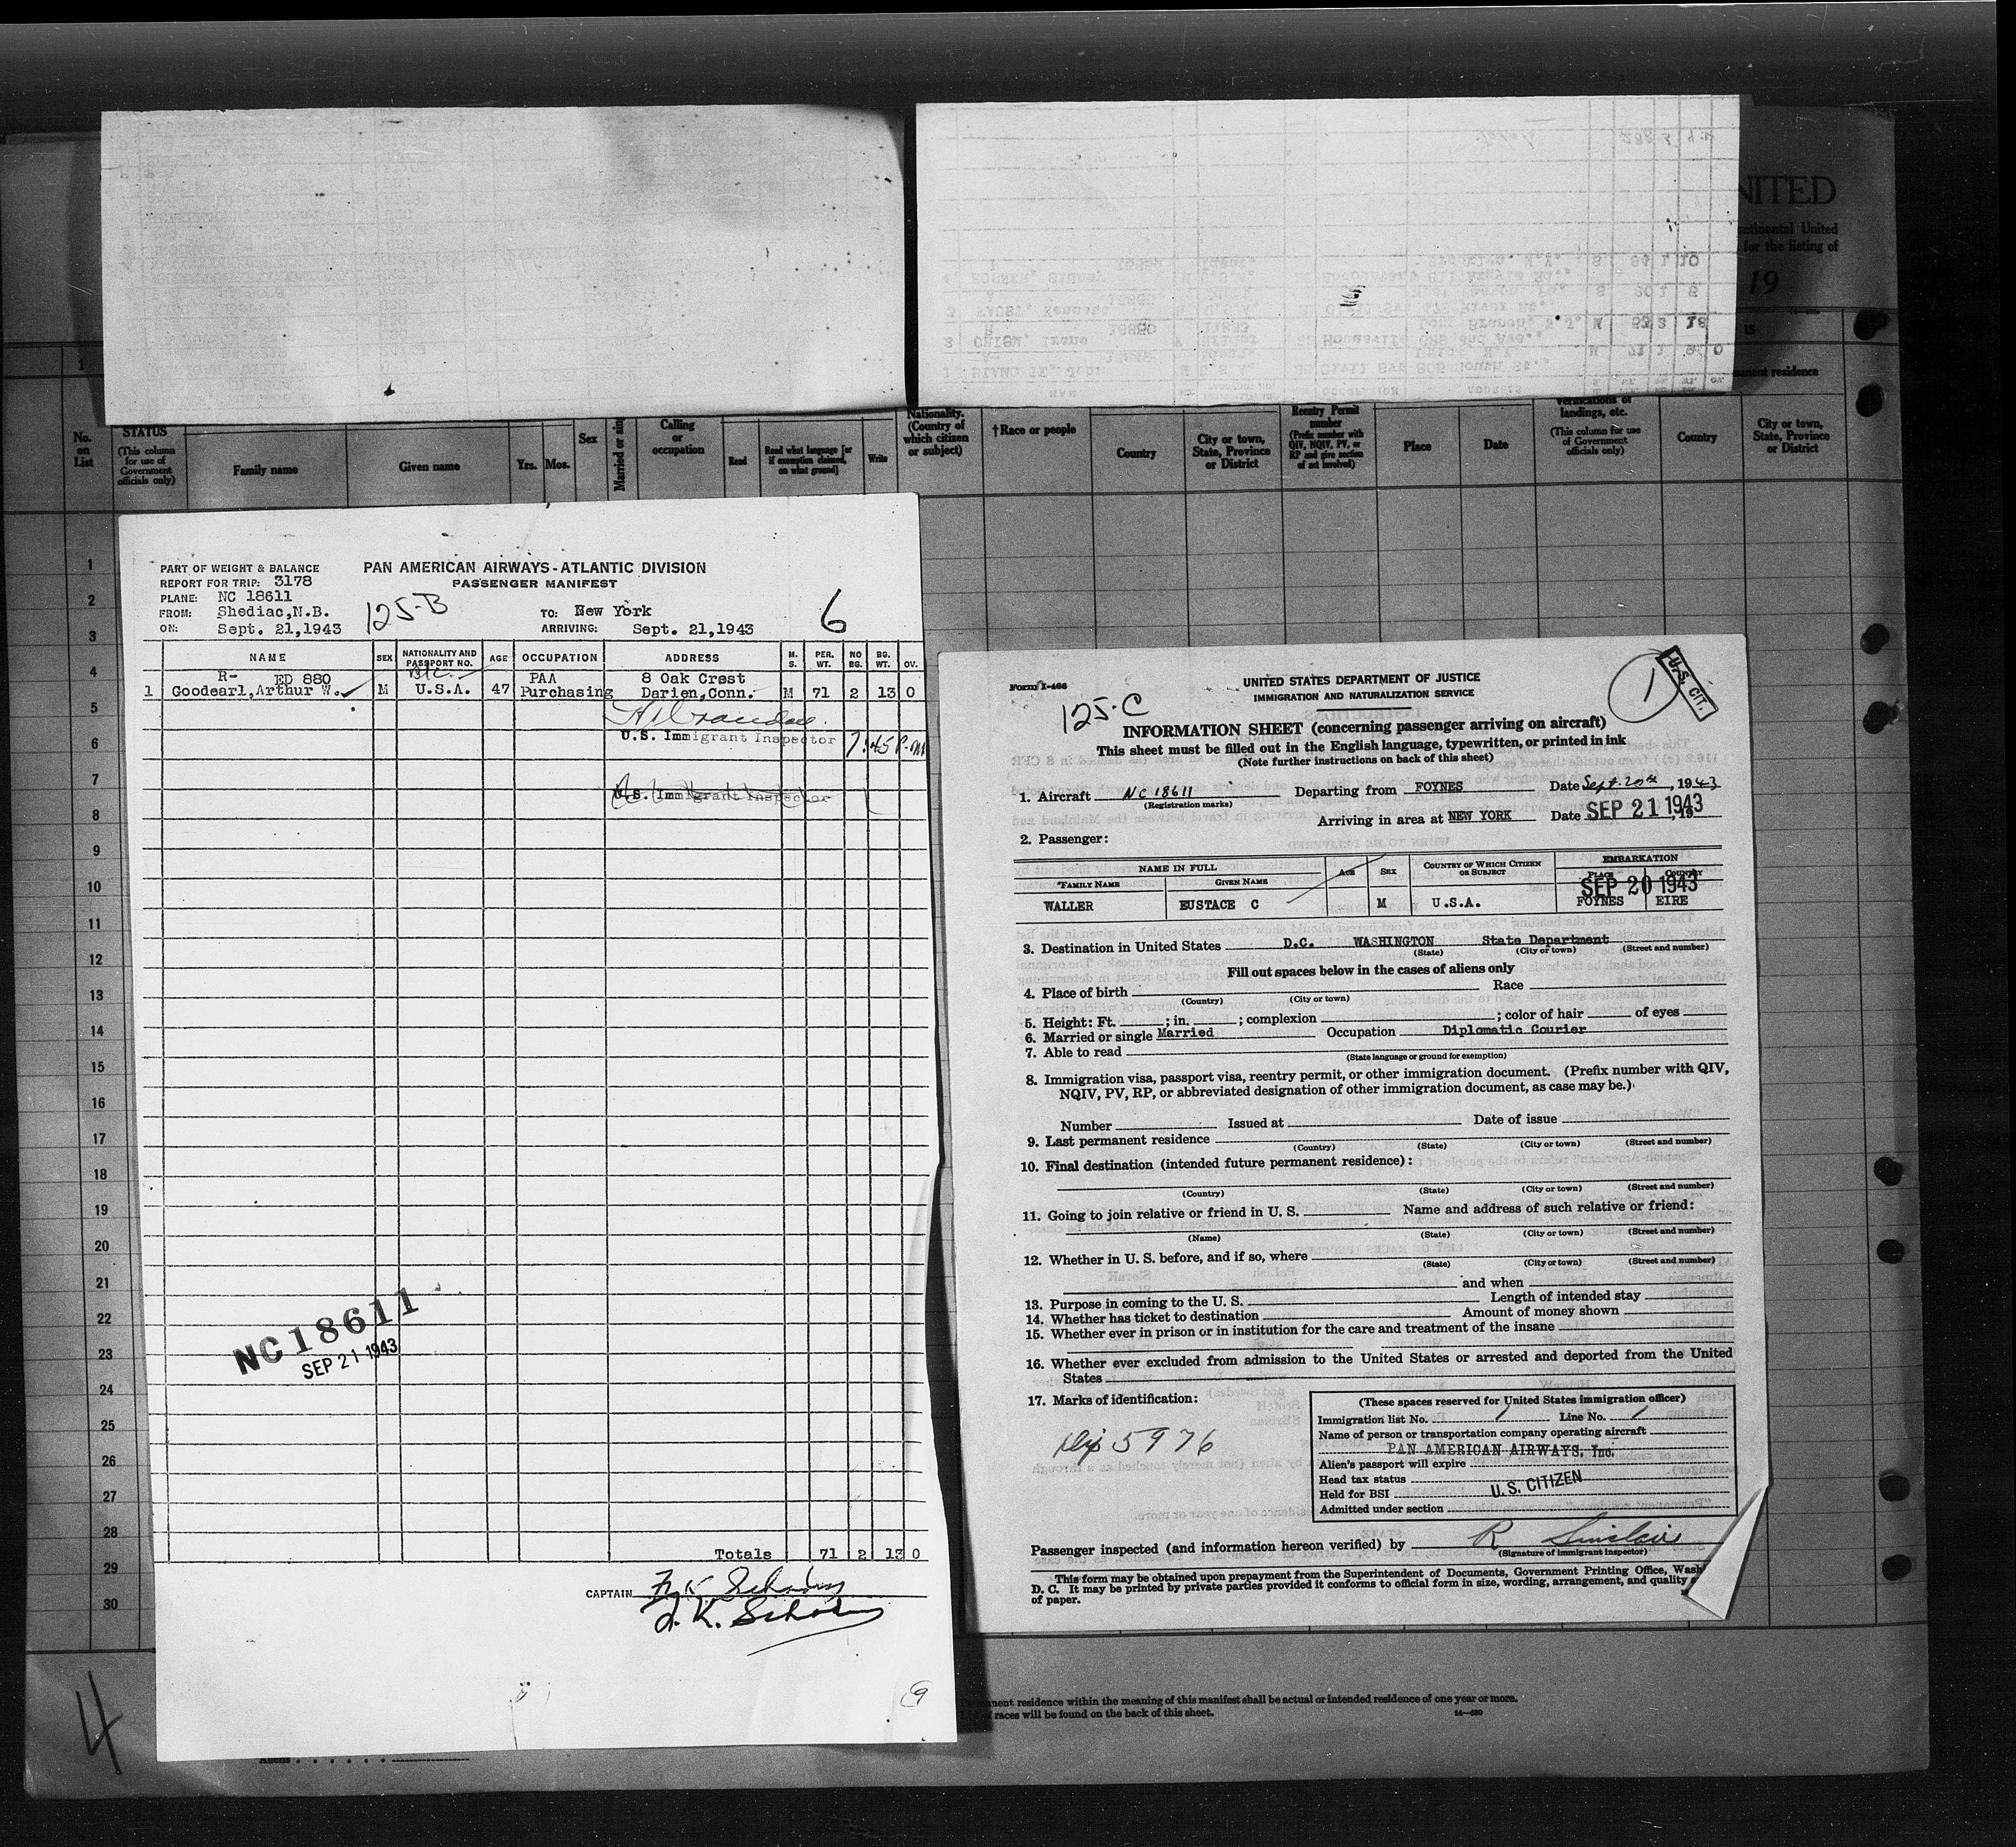 NITED
ntinental United
for the listing of
19
1
is
manent residence
No.
on
List
STATUS
(This column
for use of
Government
officials only)
Family name
Given name
Yrs.
Mos.
Sex
Married or sin
Calling
or
occupation
Read
Read what language [or
if exemption claimed,
on what ground]
Write
Nationality.
(Country of
which citizen
or subject)
†Race or people
Country
City or town,
State, Province
or District
Reentry Permit
number
(Prefix number with
QIV, NQIV, PV, or
RP and give section
of act involved)
Place
Date
verifications of
landings, etc.
(This column for use
of Government
officials only)
Country
City or town,
State, Province
or District
1
2
3
4
5
6
7
8
9
10
11
12
13
14
15
16
17
18
19
20
21
22
23
24
25
26
27
28
29
30
PART OF WEIGHT & BALANCE
REPORT FOR TRIP: 3178
PLANE: NC 18611
FROM: Shediac,N.B.
ON: Sept. 21,1943
PAN AMERICAN AIRWAYS-ATLANTIC DIVISION
PASSENGER MANIFEST
125-B
TO: New York
ARRIVING: Sept. 21,1943
6
NAME SEX NATIONALITY AND PASSPORT NO. AGE OCCUPATION ADDRESS M. S. PER. WT. NO BG. BG. WT. OV.
R- ED 880 PAA 8 Oak Crest
1 Goodearl,Arthur W. M U.S.A. 47 Purchasing Darien,Conn. M 71 2 13 0
U.S. Immigrant Inspector 7:45 P.M
U.S. Immigrant Inspector
NC18611
SEP 21 1943
Totals 71 2 13 0
CAPTAIN
9
4
Form I-466
125-C
UNITED STATES DEPARTMENT OF JUSTICE
IMMIGRATION AND NATURALIZATION SERVICE
1
U.S. CIT.
INFORMATION SHEET (concerning passenger arriving on aircraft)
This sheet must be filled out in the English language, typewritten, or printed in ink
(Note further instructions on back of this sheet)
1. Aircraft NC 18611 Departing from FOYNES Date Sept. 20th, 1943
(Registration marks)
Arriving in area at NEW YORK Date SEP 21 1943, 19
2. Passenger:
NAME IN FULL
*FAMILY NAME GIVEN NAME AGE SEX COUNTRY OF WHICH CITIZEN OR SUBJECT
EMBARKATION
PLACE COUNTRY
SEP 20 1943
WALLER EUSTACE C M U.S.A. FOYNES EIRE
3. Destination in United States D.C. WASHINGTON State Department
(State) (City or town) (Street and number)
Fill out spaces below in the cases of aliens only
4. Place of birth Race
(Country) (City or town)
5. Height: Ft. ; in. ; complexion ; color of hair of eyes
6. Married or single Married Occupation Diplomatic Courier
7. Able to read
(State language or ground for exemption)
8. Immigration visa, passport visa, reentry permit, or other immigration document. (Prefix number with QIV,
NQIV, PV, RP, or abbreviated designation of other immigration document, as case may be.)
Number Issued at Date of issue
9. Last permanent residence
(Country) (State) (City or town) (Street and number)
10. Final destination (intended future permanent residence):
(Country) (State) (City or town) (Street and number)
11. Going to join relative or friend in U. S. Name and address of such relative or friend:
(Name) (State) (City or town) (Street and number)
12. Whether in U. S. before, and if so, where
(State) (City or town) (Street and number)
and when
13. Purpose in coming to the U. S. Length of intended stay
14. Whether has ticket to destination Amount of money shown
15. Whether ever in prison or in institution for the care and treatment of the insane
16. Whether ever excluded from admission to the United States or arrested and deported from the United
States
17. Marks of identification:
Dip 5976
(These spaces reserved for United States immigration officer)
Immigration list No. 1 Line No. 1
Name of person or transportation company operating aircraft
PAN AMERICAN AIRWAYS, Inc.
Alien's passport will expire
Head tax status
Held for BSI U.S. CITIZEN
Admitted under section
Passenger inspected (and information hereon verified) by R Sinclair
(Signature of Immigrant Inspector)
This form may be obtained upon prepayment from the Superintendent of Documents, Government Printing Office, Wash
D. C. It may be printed by private parties provided it conforms to official form in size, wording, arrangement, and quality
of paper.
anent residence within the meaning of this manifest shall be actual or intended residence of one year or more.
of races will be found on the back of this sheet.